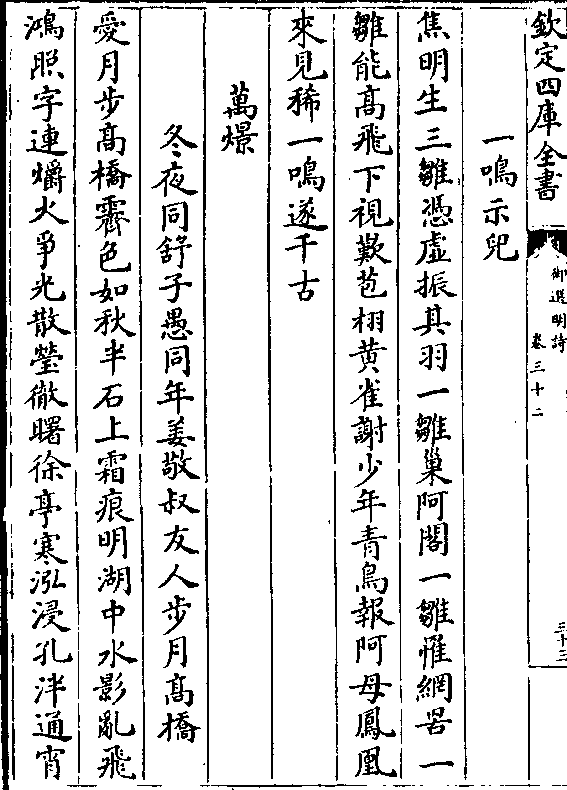 欽定四庫全書
御選明詩
卷三十二
三十三
一鳴示兒
焦明生三雛憑虛振其羽一雛巢阿閣一雛罹網罟一
雛能髙飛下視歎苞栩黄雀謝少年青鳥報阿母鳳凰
來見稀一鳴遂千古
萬㬌
冬夜同舒子愚同年姜敬叔友人步月髙橋
愛月步髙橋霽色如秋半石上霜痕明湖中水影亂飛
鴻照字連爝火爭光散瑩徹曙徐亭寒泓浸孔泮通宵